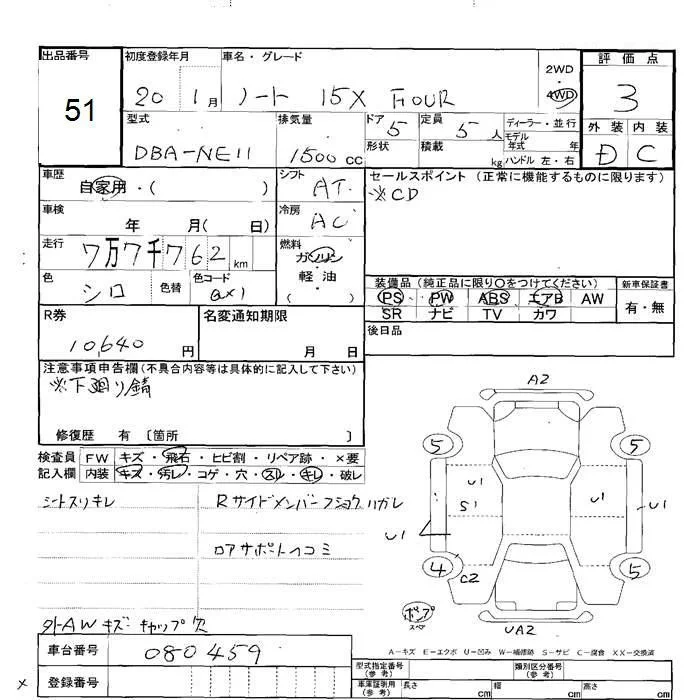 出品番号 初度登録年月 車名・グレード 評価点
51 20 1月 ノート 15X FOUR 2WD 4WD 3
型式 排気量 ドア 5 定員 5人 ディーラー・並行 外装 内装
DBA-NE11 1500cc 形状 積載 kg モデル年式 年 ハンドル 左・右 D C
車歴 自家用・( ) シフト AT セールスポイント (正常に機能するものに限ります)
※CD
車検 年 月( 日) 冷房 AC
走行 7万7千762km 燃料 ガソリン・軽油・( )
色 シロ 色替 色コード QX1
装備品 (純正品に限り○をつけてください) 新車保証書
PS PW ABS エアB AW 有・無
SR ナビ TV カワ
R券 名変通知期限 後日品
10,640円 月 日
注意事項申告欄(不具合内容等は具体的に記入して下さい)
※下廻り錆
修復歴 有 〔箇所 〕
検査員 FW キズ・飛石・ヒビ割・リペア跡・×要
記入欄 内装 キズ・汚レ・コゲ・穴・スレ・キレ・破レ
シートスリキレ Rサイドメンバーフショクハガレ
ロアサポートヘコミ
外AWキズ キャップ欠
A2
5 5
U1 S1 U1 U1
U1
4 C2 5
ポンプ スペア UA2
A-キズ E-エクボ U-凹み W-補修跡 S-サビ C-腐食 XX-交換済
車台番号 080459 型式指定番号(参考) 類別区分番号(参考)
× 登録番号 車庫証明用(参考) 長さ cm 幅 cm 高さ cm